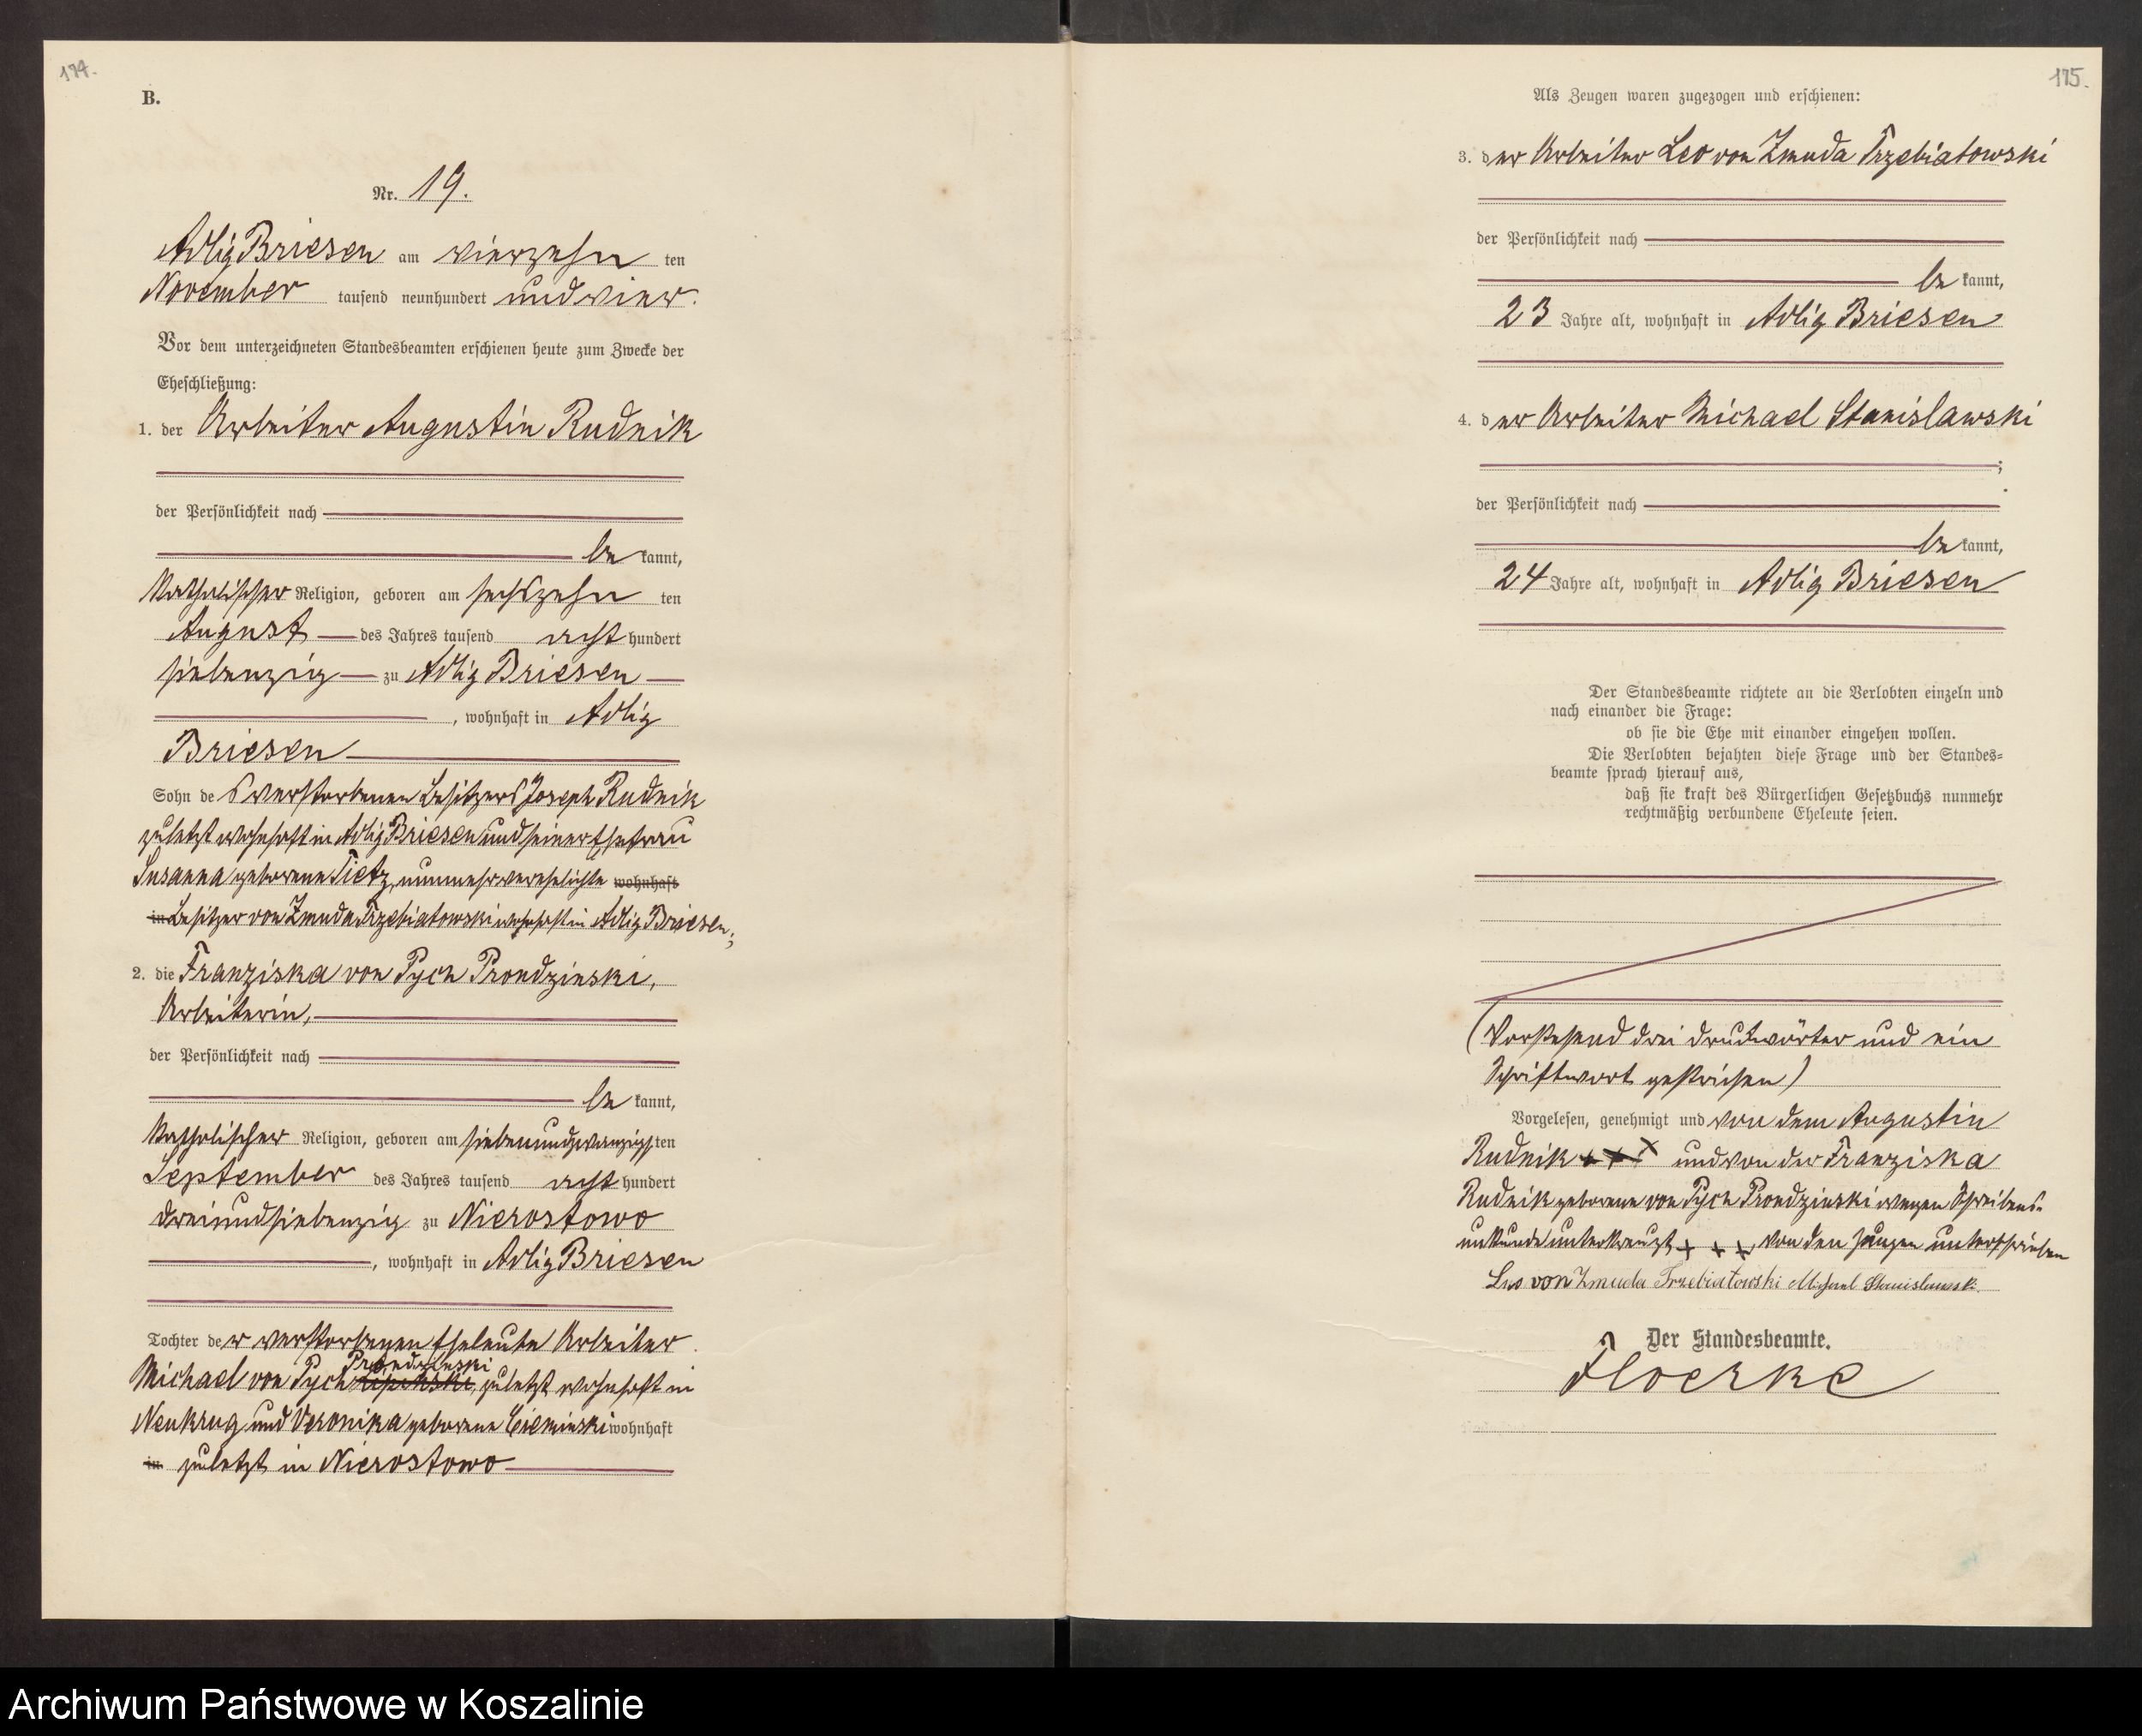 174.
B.
Nr. 19.
Adlig Briesen am vierzehn ten
November tausend neunhundert und vier.
Vor dem unterzeichneten Standesbeamten erschienen heute zum Zwecke der
Eheschließung:
1. der Arbeiter Augustin Rudnik
der Persönlichkeit nach
be kannt,
katholischer Religion, geboren am sechszehn ten
August des Jahres tausend acht hundert
siebenzig zu Adlig Briesen
, wohnhaft in Adlig
Briesen
Sohn des verstorbenen Besitzers Joseph Rudnik
zuletzt wohnhaft in Adlig Briesen und seiner Ehefrau
Susanna geborene Tietz, nunmehr verehelichte wohnhaft
in Besitzer von Zmuda Trzebiatowski wohnhaft in Adlig Briesen;
2. die Franziska von Pych Prondzinski,
Arbeiterin,
der Persönlichkeit nach
be kannt,
katholischer Religion, geboren am siebenundzwanzigsten
September des Jahres tausend acht hundert
dreiundsiebenzig zu Nierostowo
, wohnhaft in Adlig Briesen
Tochter der verstorbenen Eheleute Arbeiter
Prondzinski
Michael von Pych Lipinski, zuletzt wohnhaft in
Neukrug und Veronika geborene Cieminski wohnhaft
in zuletzt in Nierostowo
175.
Als Zeugen waren zugezogen und erschienen:
3. der Arbeiter Leo von Zmuda Trzebiatowski
der Persönlichkeit nach
be kannt,
23 Jahre alt, wohnhaft in Adlig Briesen
4. der Arbeiter Michael Stanislawski
;
der Persönlichkeit nach
be kannt,
24 Jahre alt, wohnhaft in Adlig Briesen
Der Standesbeamte richtete an die Verlobten einzeln und
nach einander die Frage:
ob sie die Ehe mit einander eingehen wollen.
Die Verlobten bejahten diese Frage und der Standes-
beamte sprach hierauf aus,
daß sie kraft des Bürgerlichen Gesetzbuchs nunmehr
rechtmäßig verbundene Eheleute seien.
(Vorstehend drei Druckwörter und ein
Schriftwort gestrichen)
Vorgelesen, genehmigt und von dem Augustin
Rudnik + + x und von der Franziska
Rudnik geborene von Pych Prondzinski wegen Schreibens-
unkunde unterkreuzt + + + von den Zeugen unterschrieben
Leo von Zmuda Trzebiatowski Michael Stanislawski.
Der Standesbeamte.
Floerke
Archiwum Państwowe w Koszalinie